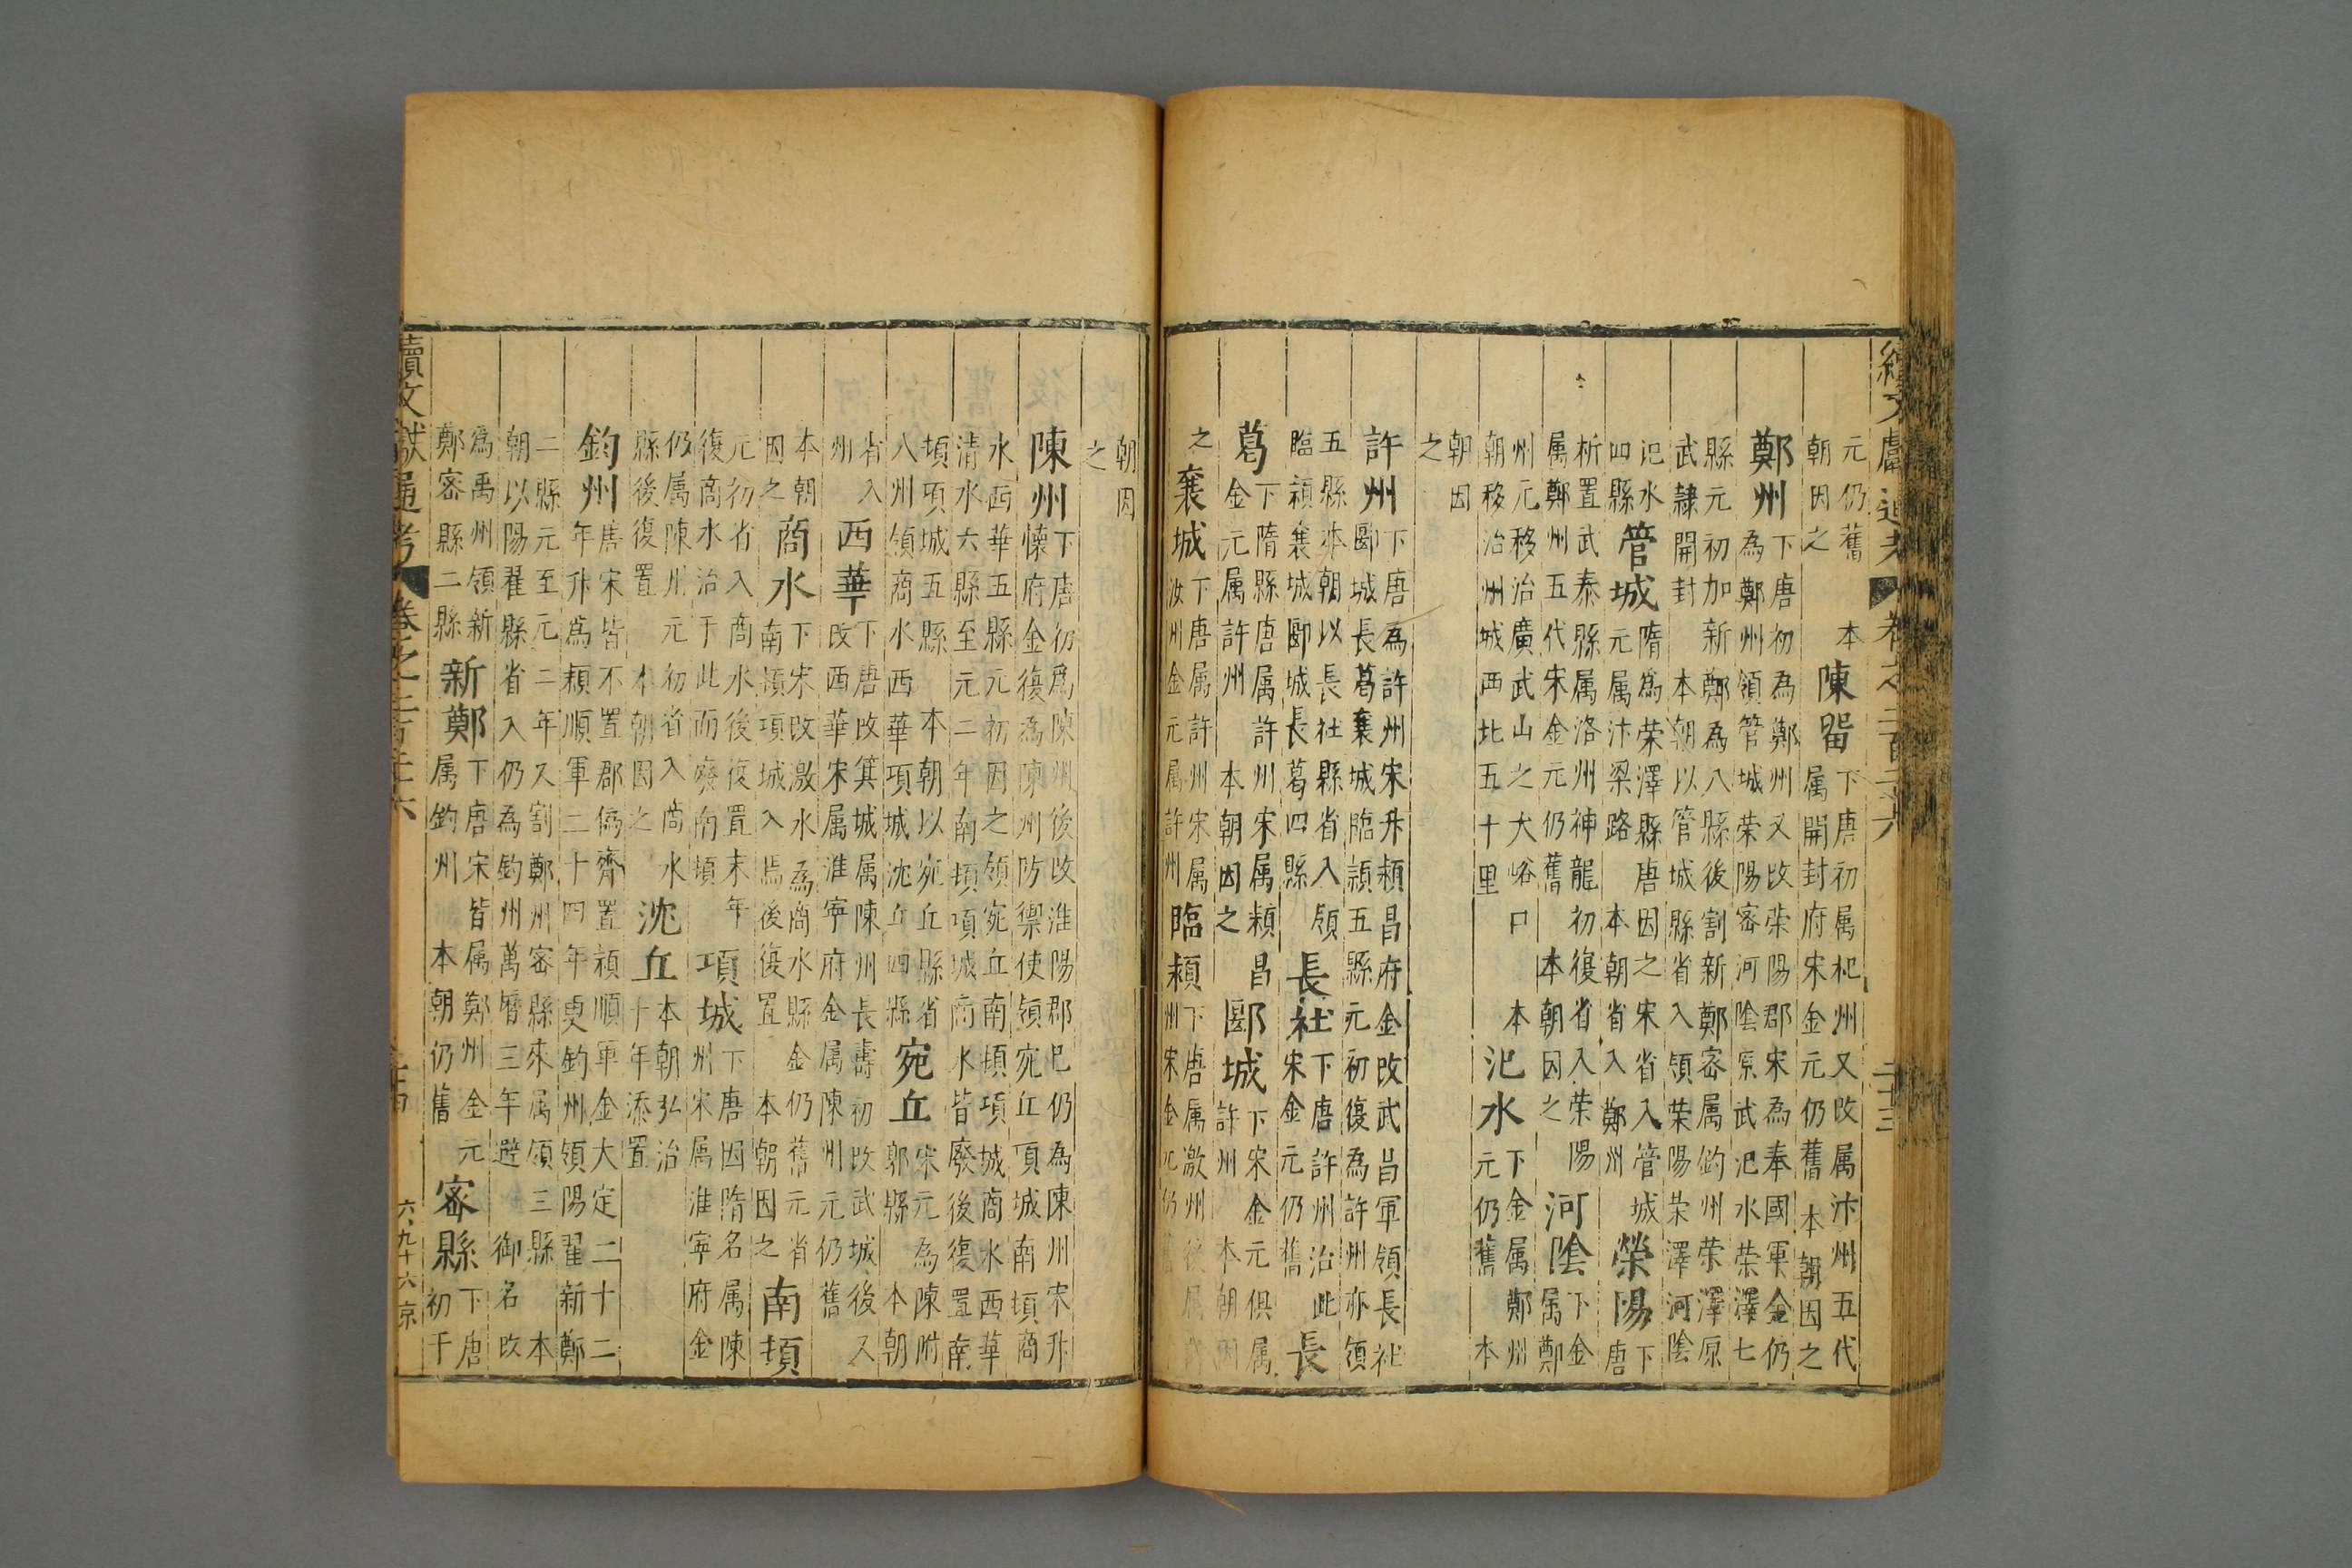 續文獻通考 卷之二百二十六 二十三
元仍舊 本朝因之 陳畱 下唐初属杞州又改属汴州五代属開封府宋金元仍舊 本朝因之
鄭州 下唐初為鄭州又改滎陽郡宋為奉國軍金仍為鄭州領管城荣陽密河陰原武汜水荣澤七
縣元初加新鄭為八縣後割新鄭密属鈞州荣澤原武隸開封 本朝以管城縣省入領荣陽荣澤河陰
汜水四縣 管城 隋為荣澤縣唐因之宋省入管城元属汴梁路 本朝省入鄭州 滎陽 下唐
析置武泰縣属洛州神龍初復省入荣陽属鄭州五代宋金元仍舊 本朝因之 河陰 下金属鄭
州元移治廣武山之大峪口 本朝移治州城西北五十里 汜水 下金属鄭州元仍舊 本
朝因之
許州 下唐為許州宋升潁昌府金改武昌軍領長社郾城長葛襄城臨潁五縣元初復為許州亦領
五縣本朝以長社縣省入領臨潁襄城郾城長葛四縣 長社 下唐許州治此宋金元仍舊 長
葛 下隋縣唐属許州宋属潁昌金元属許州 本朝因之 郾城 下宋金元俱属許州 本朝因
之 襄城 下唐属許州宋属汝州金元属許州 臨潁 下唐属溵州後属州宋金元仍
朝因之
陳州 下唐初爲陳州後改淮陽郡已仍為陳州宋升懷府金復為陳州防禦使領宛丘項城南頓商
水西華五縣元初因之領宛丘南頓項城商水西華清水六縣至元二年南頓項城商水皆廢後復置南
頓項城五縣 本朝以宛丘縣省八州領商水西華項城沈丘四縣 宛丘 宋元為陳附郭縣 本朝
省入州 西華 下唐改箕城属陳州長壽初改武城後又改西華宋属淮寧府金属陳州元仍舊
本朝因之 商水 下宋改溵水為商水縣金仍舊元省南頓項城入焉後復置 本朝因之 南頓
元初省入商水後復置末年復商水治于此而廢南頓 項城 下唐因隋名属陳州宋属淮寧府金
仍属陳州元初省入商水縣後復置 本朝因之 沈丘 本朝弘治十年添置
鈞州 唐宋皆不置郡僞齊置潁順軍金大定二十二年升爲潁順軍二十四年更鈞州領陽翟新鄭
二縣元至元二年又割鄭州密縣來属領三縣 本朝以陽翟縣省入仍為鈞州萬曆三年避 御名改
爲禹州領新鄭密縣二縣 新鄭 下唐宋皆属鄭州金元属鈞州 本朝仍舊 密縣 下唐初于
續文獻通考 卷之二百二十六 二十四 六九十六京